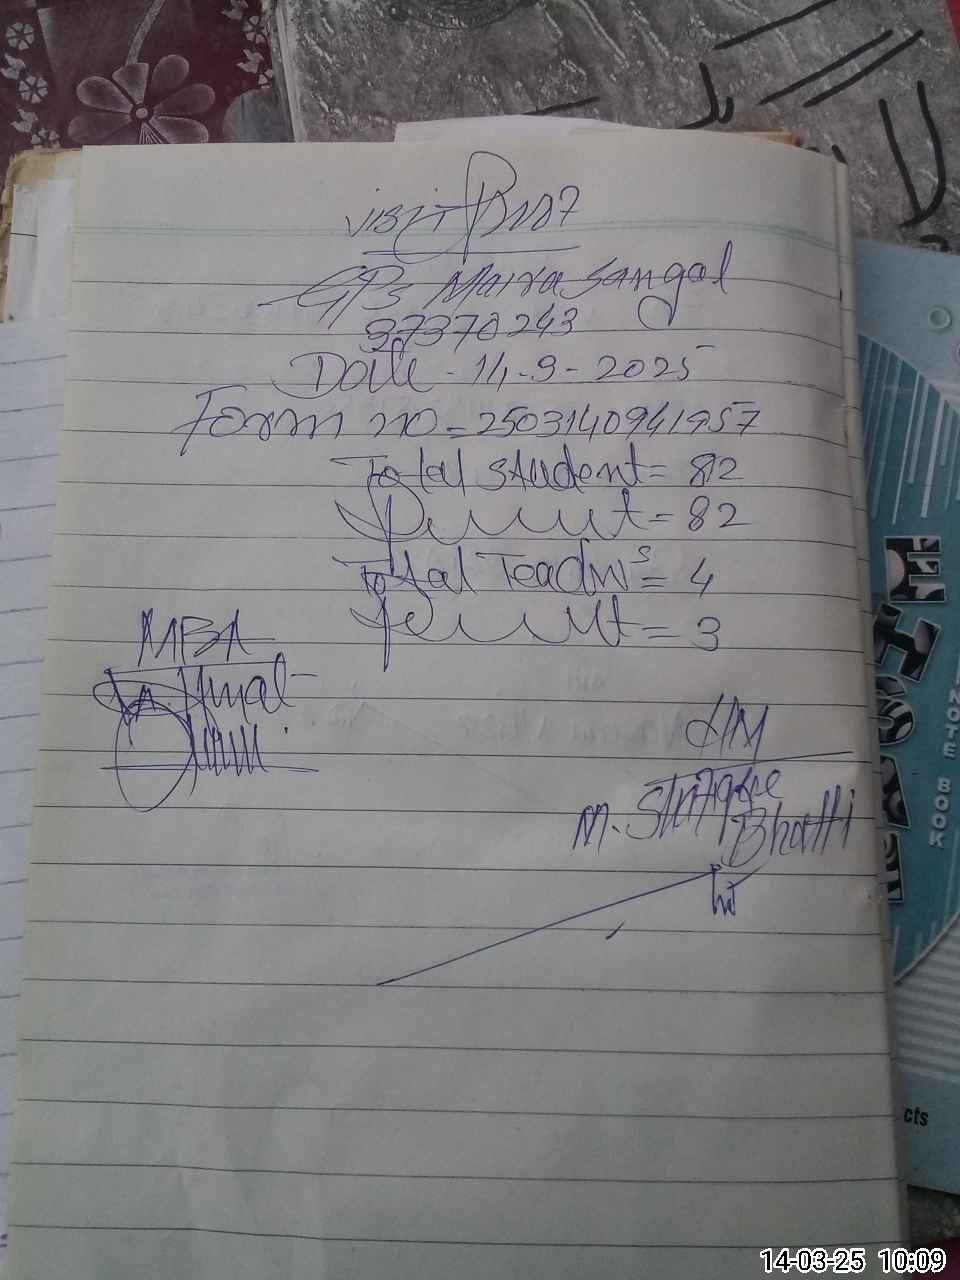 GPs Maira Sangal
37370243
Date - 14-3-2025
Form no = 2503140941957
Total student = 82
Present = 82
Total Teachers = 4
Present = 3
HM
M. Bhatti
EHSAN
NOTE BOOK
cts
14-03-25 10:09